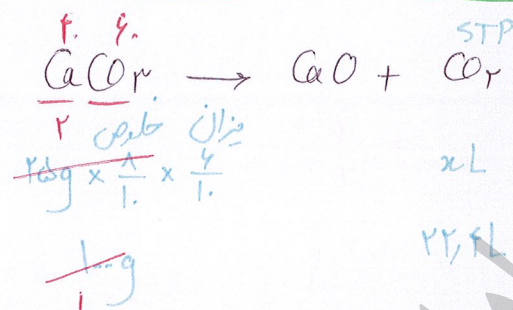 ۴۰ ۶۰ STP
CaCO۳ → CaO + CO۲
۲ خلوص میزان
۲۵g × ۸/۱۰ × ۶/۱۰ xL
۱۰۰g ۲۲,۴L
۱